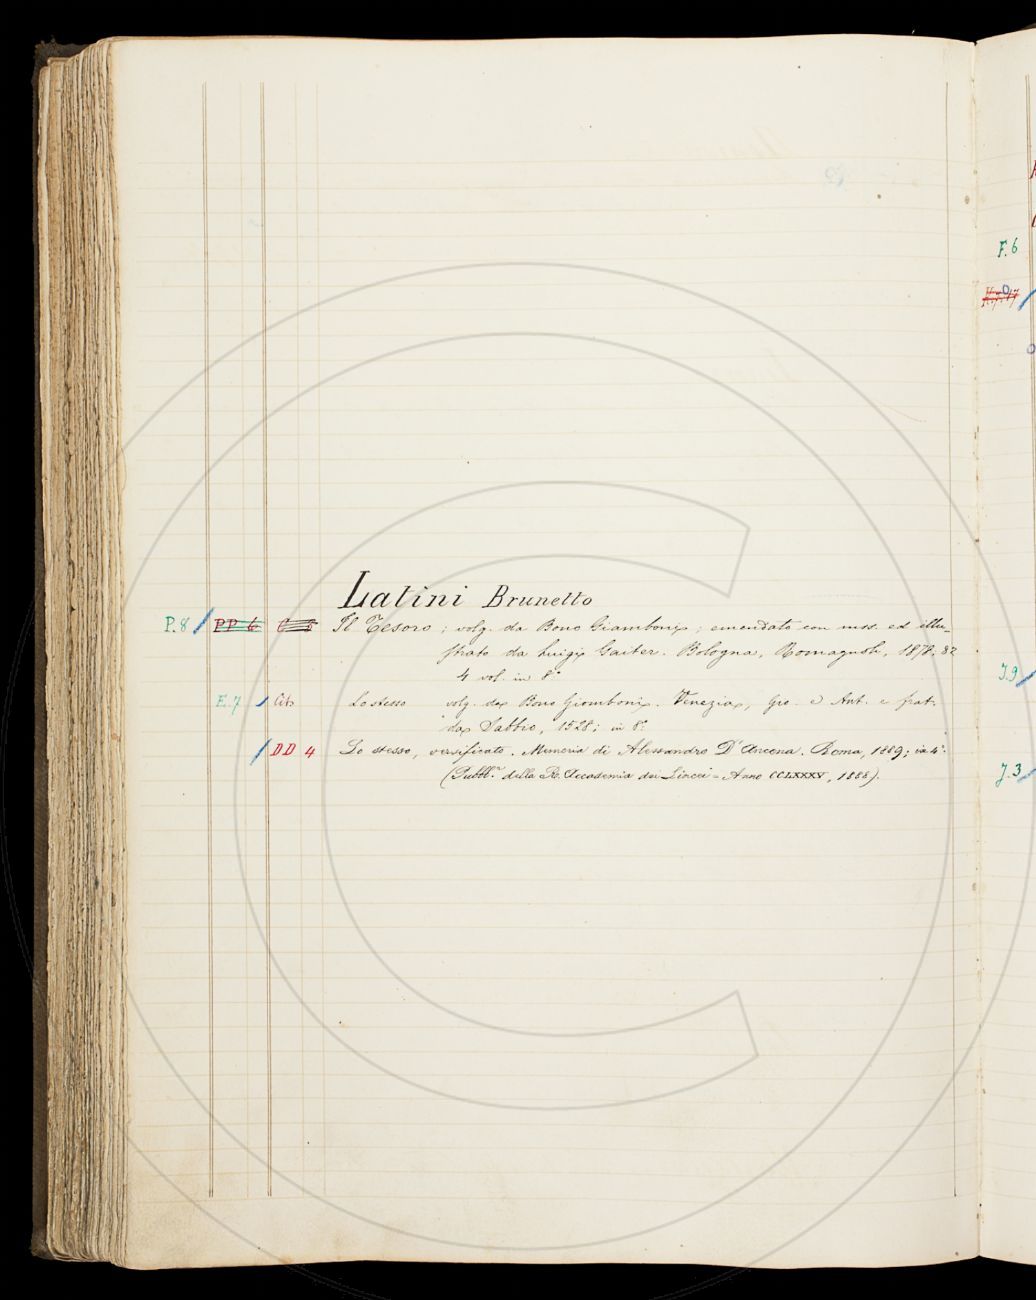 Latini Brunetto
P.8 PP 6 C 8 Il Tesoro; volg. da Bono Giamboni; emendato con mss. ed illu-
strato da Luigi Gaiter. Bologna, Romagnoli, 1878-82
4 vol. in 8°
E.7 Cit. Lo stesso volg. da Bono Giamboni. Venezia, Gio. Ant. e frat.
da Sabbio, 1528; in 8°.
DD 4 Lo stesso, versificato. Memoria di Alessandro D'Ancona. Roma, 1889; in 4°.
(Pubbl.ne della R. Accademia dei Lincei - Anno CCLXXXV, 1888).
F.6
J.9
J.3